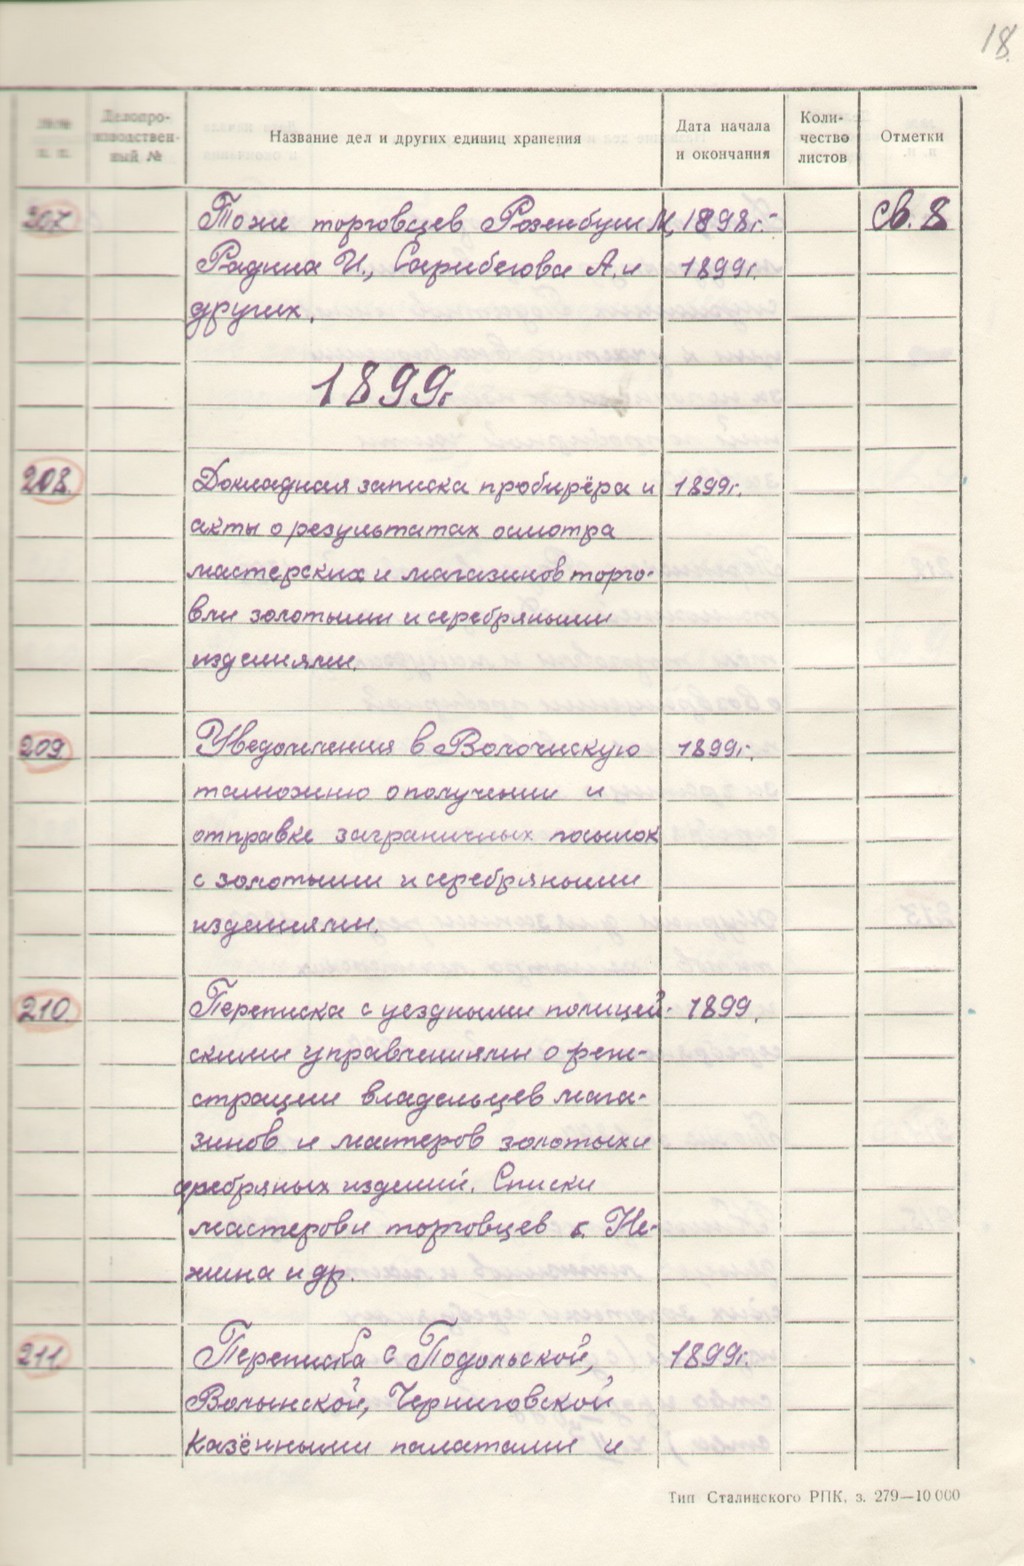 18.
№№ п. п.
Делопро-
изводствен-
ный №
Название дел и других единиц хранения
Дата начала
и окончания
Коли-
чество
листов
Отметки
207 Тоже торговцев Розенбуш М, 1898г.- св. 8
Радина И., Сарибегова А. и 1899г.
других.
1899г
208. Докладная записка пробирёра и 1899г.
акты о результатах осмотра
мастерских и магазинов торго-
вли золотыми и серебряными
изделиями.
209 Уведомления в Волочискую 1899г.
таможню о получении и
отправке заграничных посылок
с золотыми и серебряными
изделиями.
210. Переписка с уездными полицей- 1899.
скими управлениями о реги-
страции владельцев мага-
зинов и мастеров золотых и
серебряных изделий. Списки
мастеров и торговцев г. Не-
жина и др.
211. Переписка с Подольской, 1899г.
Волынской, Черниговской
казёнными палатами и
Тип Сталинского РПК, з. 279—10 000